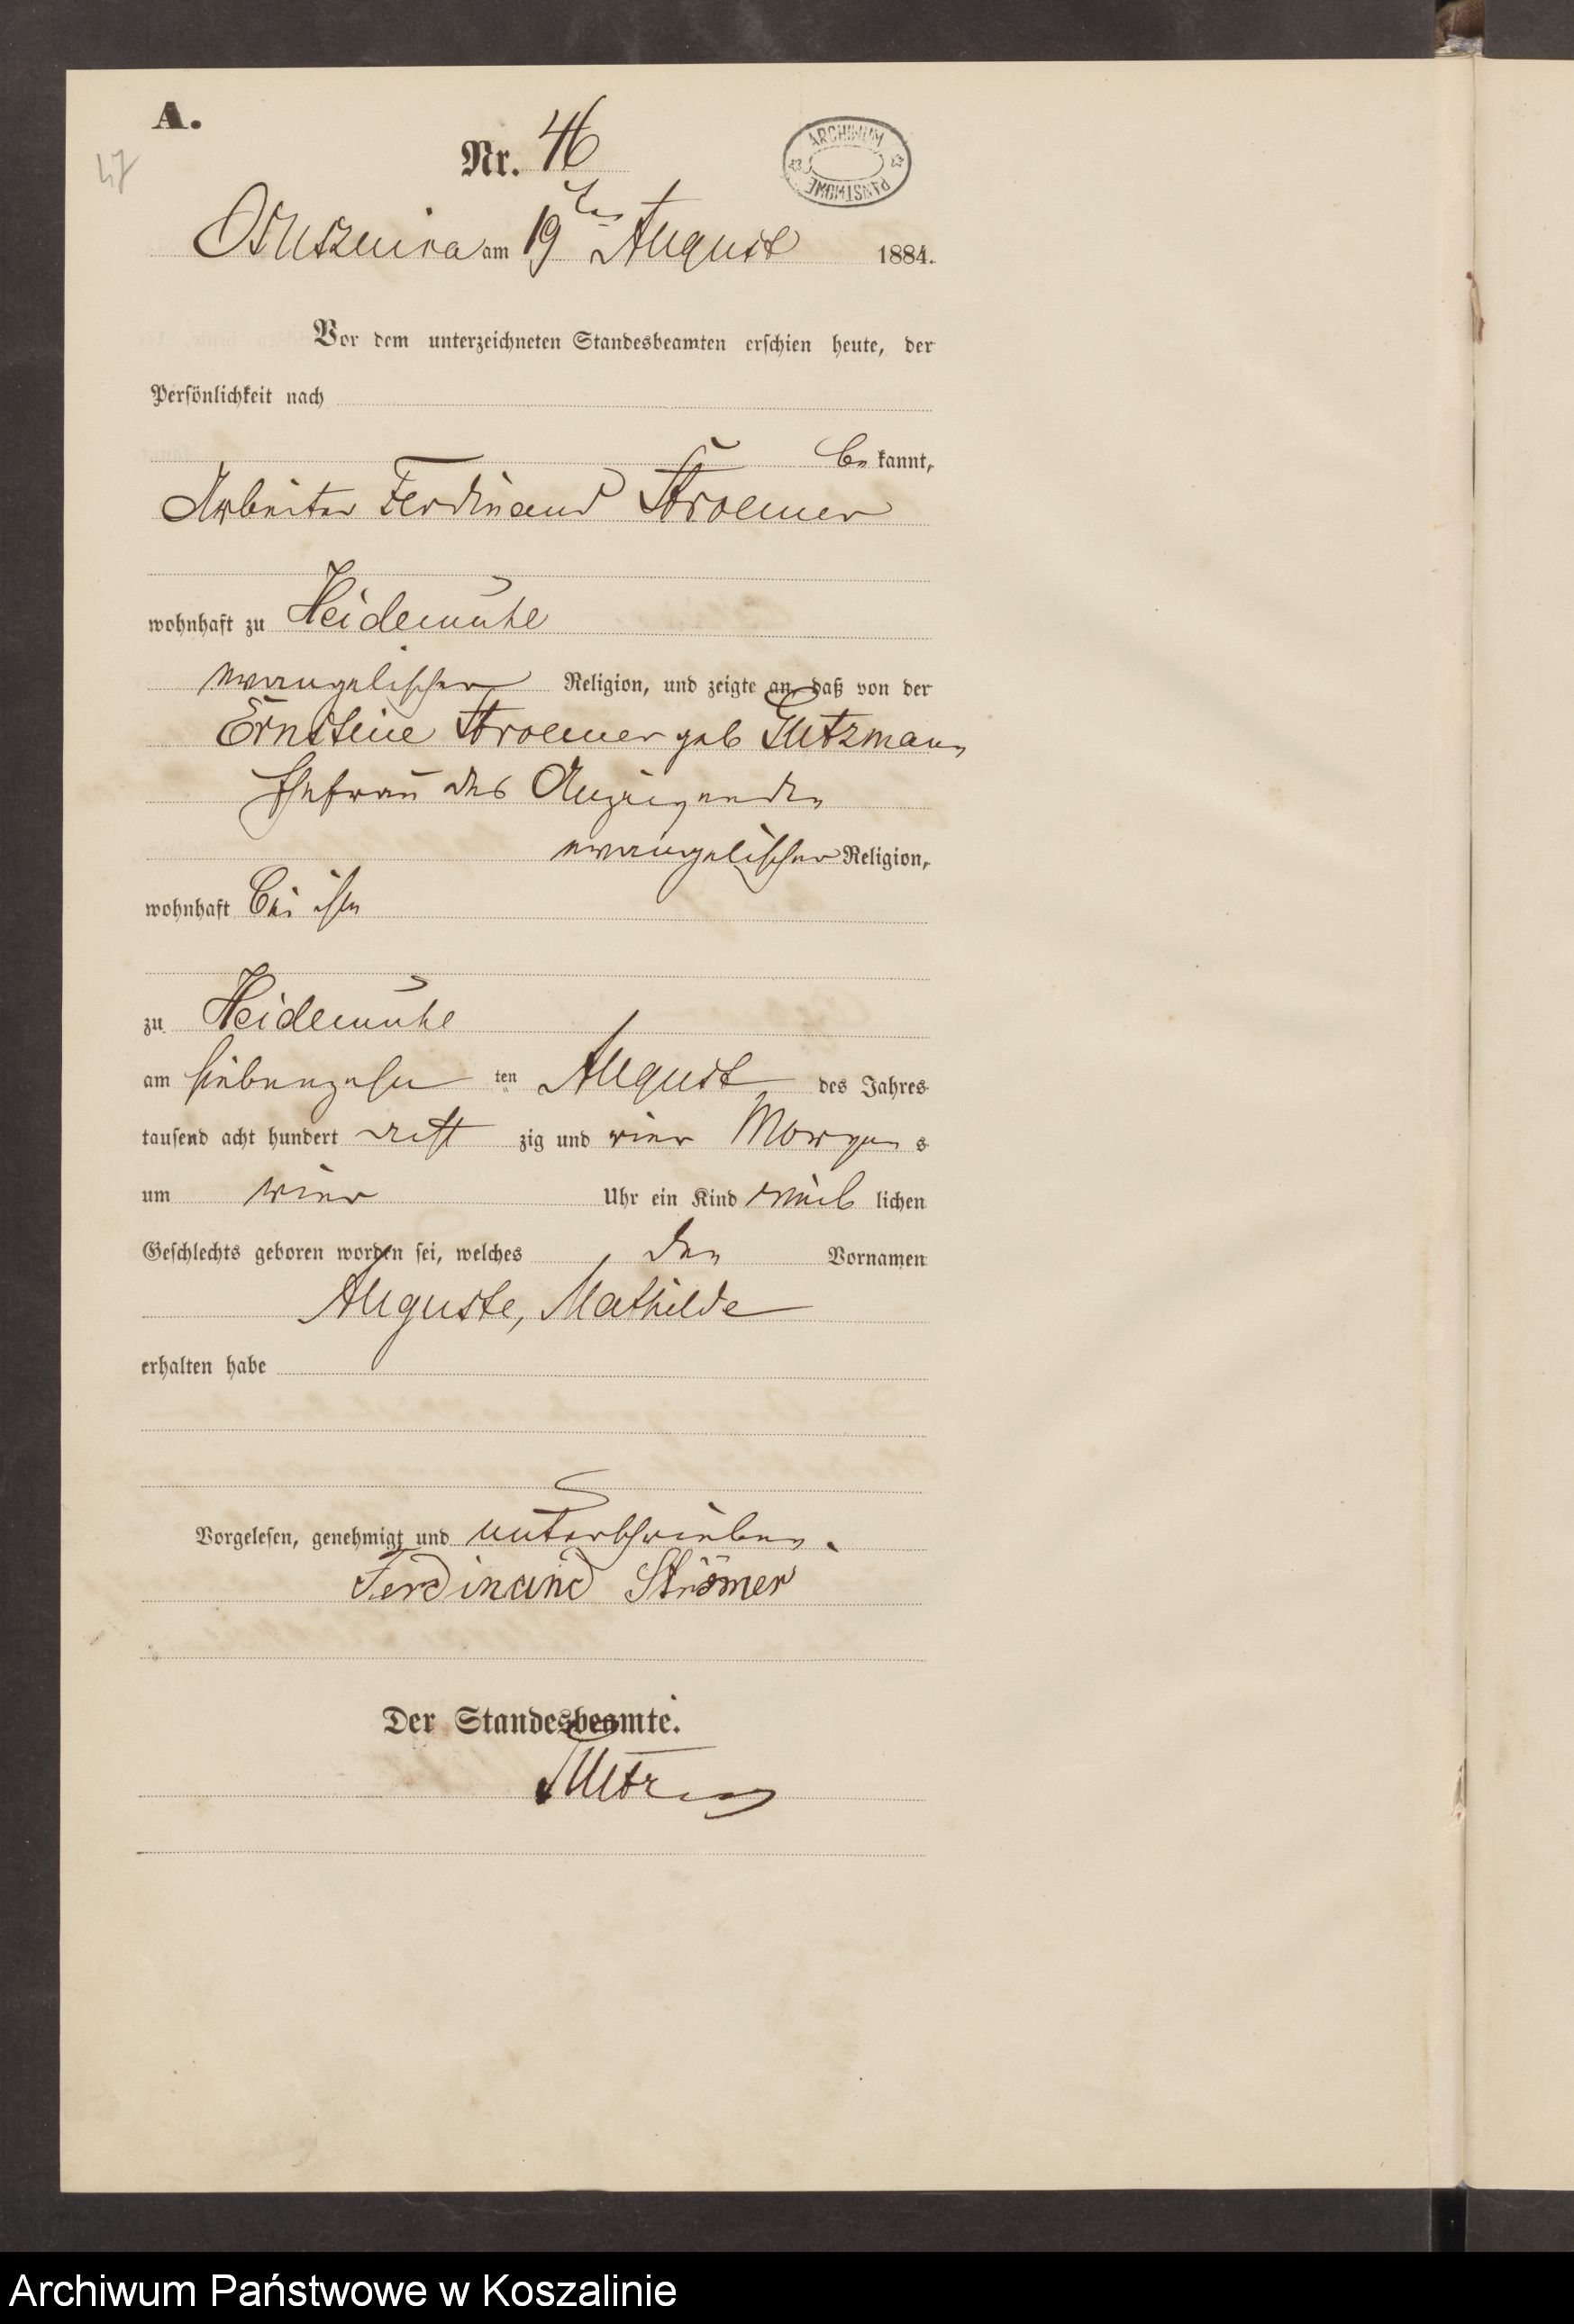 A.
47
Nr. 46
ARCHIWUM PAŃSTWOWE
Osuszniza am 19ten August 1884.
Vor dem unterzeichneten Standesbeamten erschien heute, der
Persönlichkeit nach
be kannt,
Arbeiter Ferdinand Stroemer
wohnhaft zu Heidemühl
evangelischer Religion, und zeigte an, daß von der
Ernstine Stroemer geb Gutzmann
Ehefrau des Anzeigenden
evangelischer Religion,
wohnhaft bei ihm
zu Heidemühl
am siebenzehn ten August des Jahres
tausend acht hundert acht zig und vier Morgens
um vier Uhr ein Kind weib lichen
Geschlechts geboren worden sei, welches den Vornamen
Auguste, Mathilde
erhalten habe
Vorgelesen, genehmigt und unterschrieben.
Ferdinand Strömer
Der Standesbeamte.
Archiwum Państwowe w Koszalinie